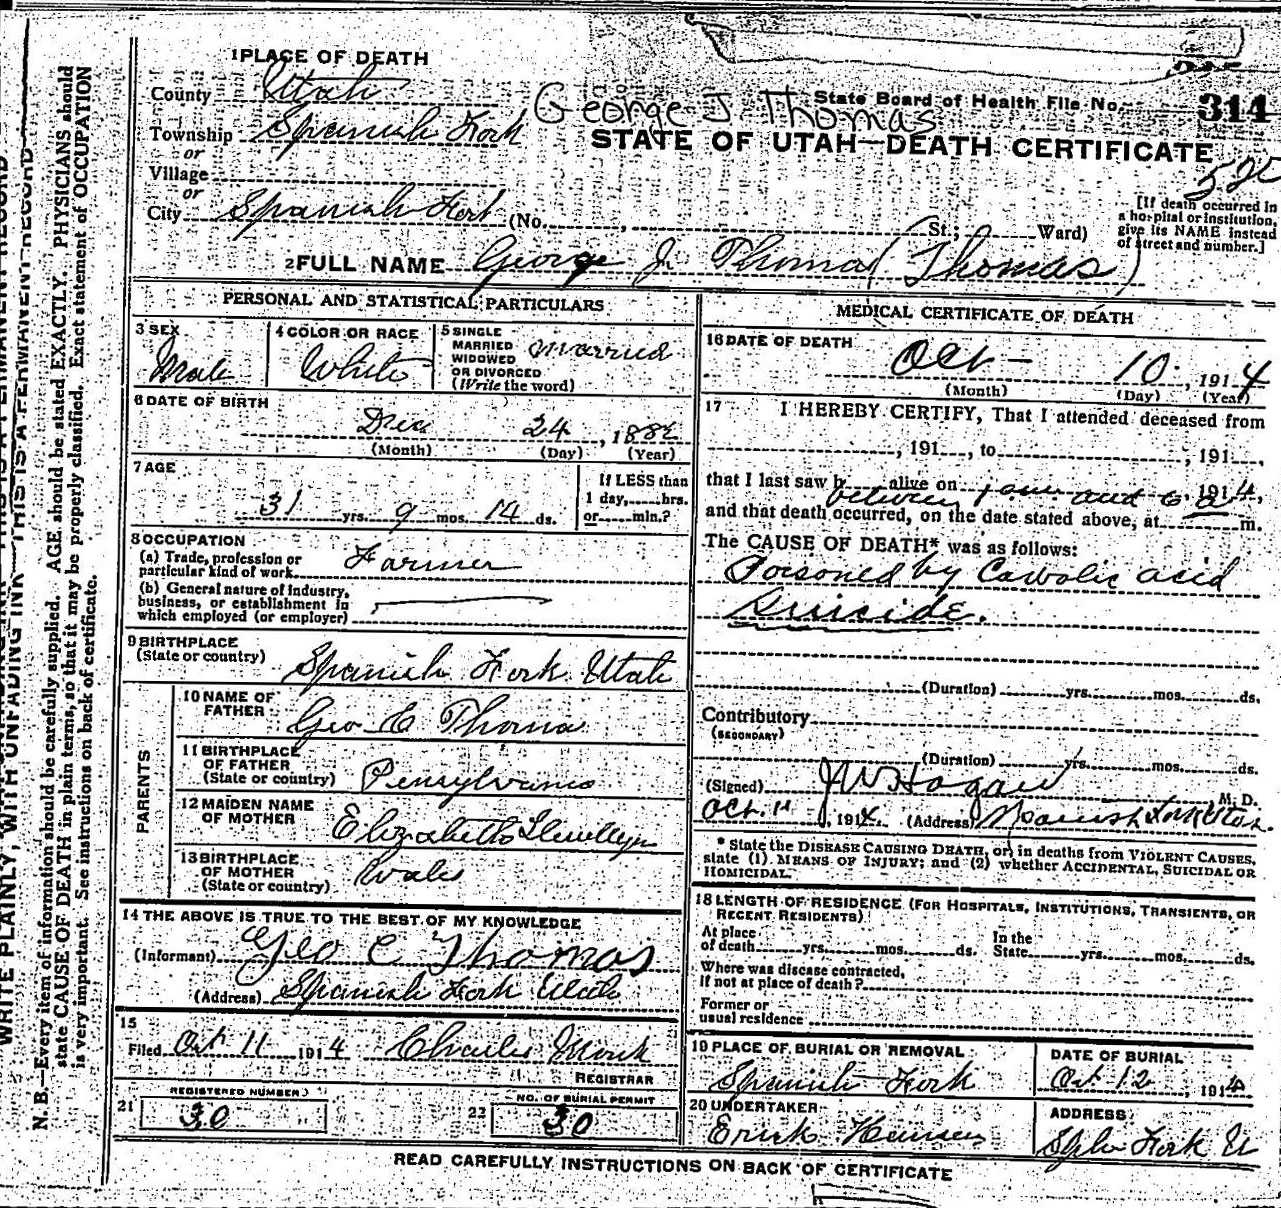 1 PLACE OF DEATH
County Utah
George J. Thomas
State Board of Health File No. 314
Township Spanish Fork
STATE OF UTAH—DEATH CERTIFICATE
or
Village
or
City Spanish Fork (No. , St.; Ward)
[If death occurred in
a hospital or institution,
give its NAME instead
of street and number.]
2 FULL NAME George J. Thomas (Thomas)
PERSONAL AND STATISTICAL PARTICULARS
3 SEX
Male
4 COLOR OR RACE
White
5 SINGLE
MARRIED
WIDOWED
OR DIVORCED
(Write the word)
Married
6 DATE OF BIRTH
Dec 24, 1882
(Month) (Day) (Year)
7 AGE
31 yrs. 9 mos. 14 ds.
If LESS than
1 day, hrs.
or min.?
8 OCCUPATION
(a) Trade, profession or
particular kind of work Farmer
(b) General nature of industry,
business, or establishment in
which employed (or employer)
9 BIRTHPLACE
(State or country) Spanish Fork Utah
PARENTS
10 NAME OF
FATHER Geo E Thomas
11 BIRTHPLACE
OF FATHER
(State or country) Pensylvania
12 MAIDEN NAME
OF MOTHER Elizabeth Llewellyn
13 BIRTHPLACE
OF MOTHER
(State or country) Wales
14 THE ABOVE IS TRUE TO THE BEST OF MY KNOWLEDGE
(Informant) Geo E Thomas
(Address) Spanish Fork Utah
15
Filed Oct 11 1914 Charles Monk
REGISTRAR
REGISTERED NUMBER
21 30
NO. OF BURIAL PERMIT
22 30
MEDICAL CERTIFICATE OF DEATH
16 DATE OF DEATH
Oct - 10, 1914
(Month) (Day) (Year)
17 I HEREBY CERTIFY, That I attended deceased from
, 191 , to , 191 ,
that I last saw h alive on , 1914,
between 1 am and 6 a
and that death occurred, on the date stated above, at m.
The CAUSE OF DEATH* was as follows:
Poisoned by Carbolic acid
Suicide.
(Duration) yrs. mos. ds.
Contributory
(SECONDARY)
(Duration) yrs. mos. ds.
(Signed) J W Hagan M. D.
Oct. 11, 1914 (Address) Spanish Fork Utah.
* State the DISEASE CAUSING DEATH, or, in deaths from VIOLENT CAUSES,
state (1) MEANS OF INJURY; and (2) whether ACCIDENTAL, SUICIDAL OR
HOMICIDAL.
18 LENGTH OF RESIDENCE (FOR HOSPITALS, INSTITUTIONS, TRANSIENTS, OR
RECENT RESIDENTS)
At place
of death yrs. mos. ds.
In the
State yrs. mos. ds.
Where was disease contracted,
if not at place of death?
Former or
usual residence
19 PLACE OF BURIAL OR REMOVAL
Spanish Fork
DATE OF BURIAL
Oct 12, 1914
20 UNDERTAKER
Erick Hansen
ADDRESS
Fork U
READ CAREFULLY INSTRUCTIONS ON BACK OF CERTIFICATE
WRITE PLAINLY, WITH UNFADING INK—THIS IS A PERMANENT RECORD
N. B.—Every item of information should be carefully supplied. AGE should be stated EXACTLY. PHYSICIANS should
state CAUSE OF DEATH in plain terms, so that it may be properly classified. Exact statement of OCCUPATION
is very important. See instructions on back of certificate.